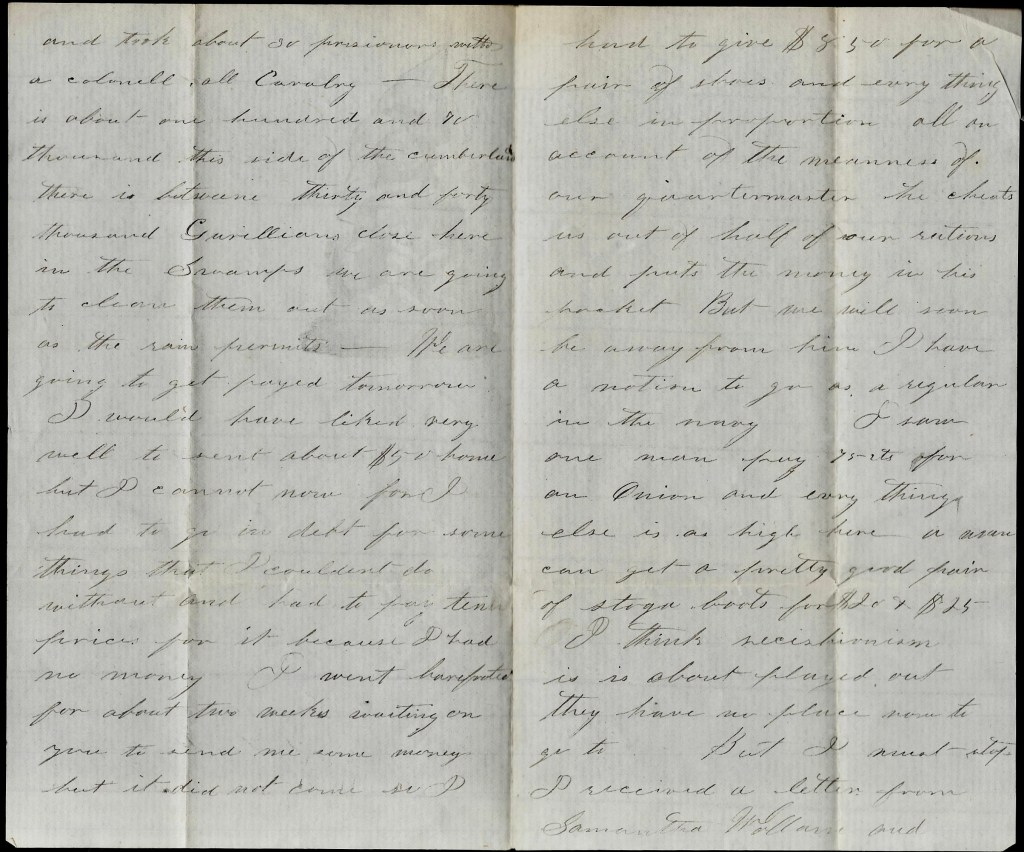 and took about 30 prisionors with
a colonell all Cavalry — There
is about one hundred and 70
thousand this side of the cumberland
there is betweene thirty and forty
thousand Gurillians close here
in the Swamps we are going
to clean them out as soon
as the rain permits — We are
going to get payed tomorrow
I would have liked very
well to sent about $50 home
but I cannot now for I
had to go in debt for some
things that I couldent do
without and had to pay tenn
prices for it because I had
no money I went barefooted
for about two weeks waiting on
you to send me some money
but it did not come so I
had to give $3 50 for a
pair of shoes and evry thing
else in proportion all on
account of the meanness of
our quartermaster he cheats
us out of half of our rations
and puts the money in his
pocket But we will soon
be away from him I have
a notion to go as a regular
in the navy I saw
one man pay 75 cts for
an Onion and evry thing
else is as high here a man
can get a pretty good pair
of stoga boots for $20 & $25
I think secishionism
is is about played out
they have no place now to
go to But I must stop
I received a letter from
Samantha and